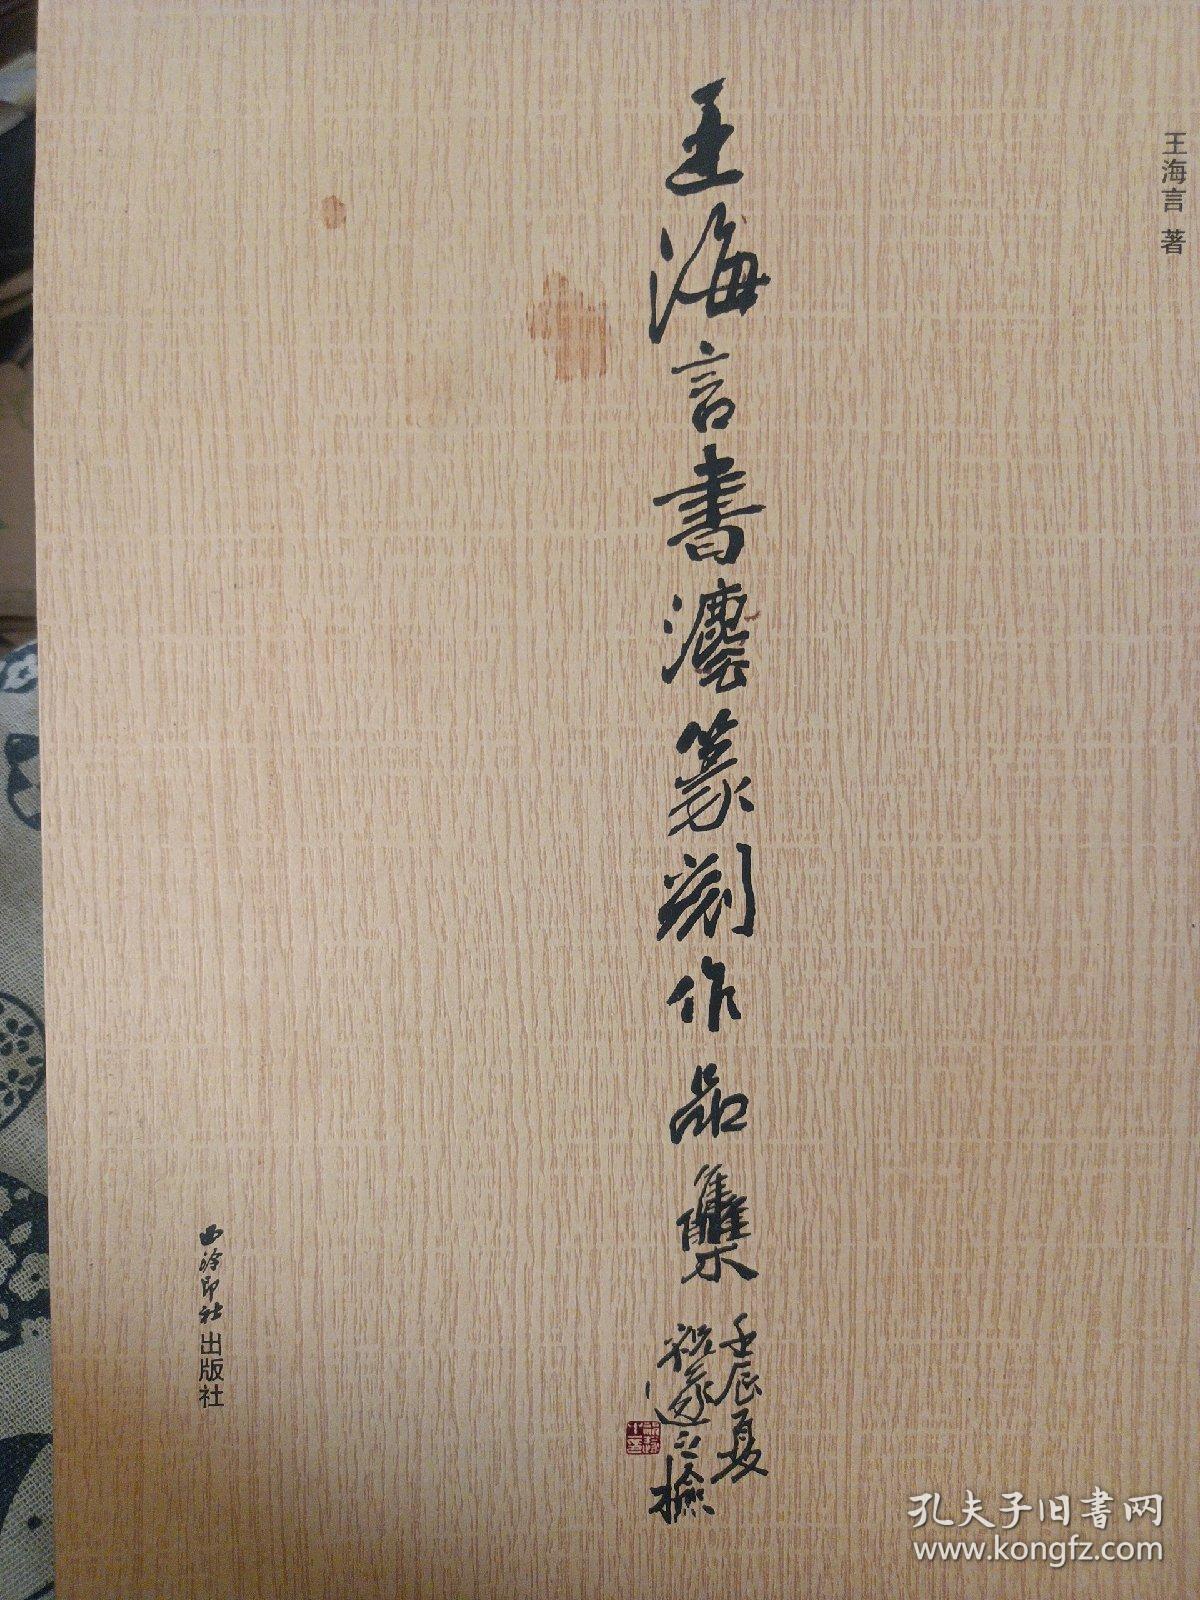 王海言 著
王海言書灋篆刻作品集
壬辰夏
祝遂之檢
西泠印社出版社
孔夫子旧书网
www.kongfz.com